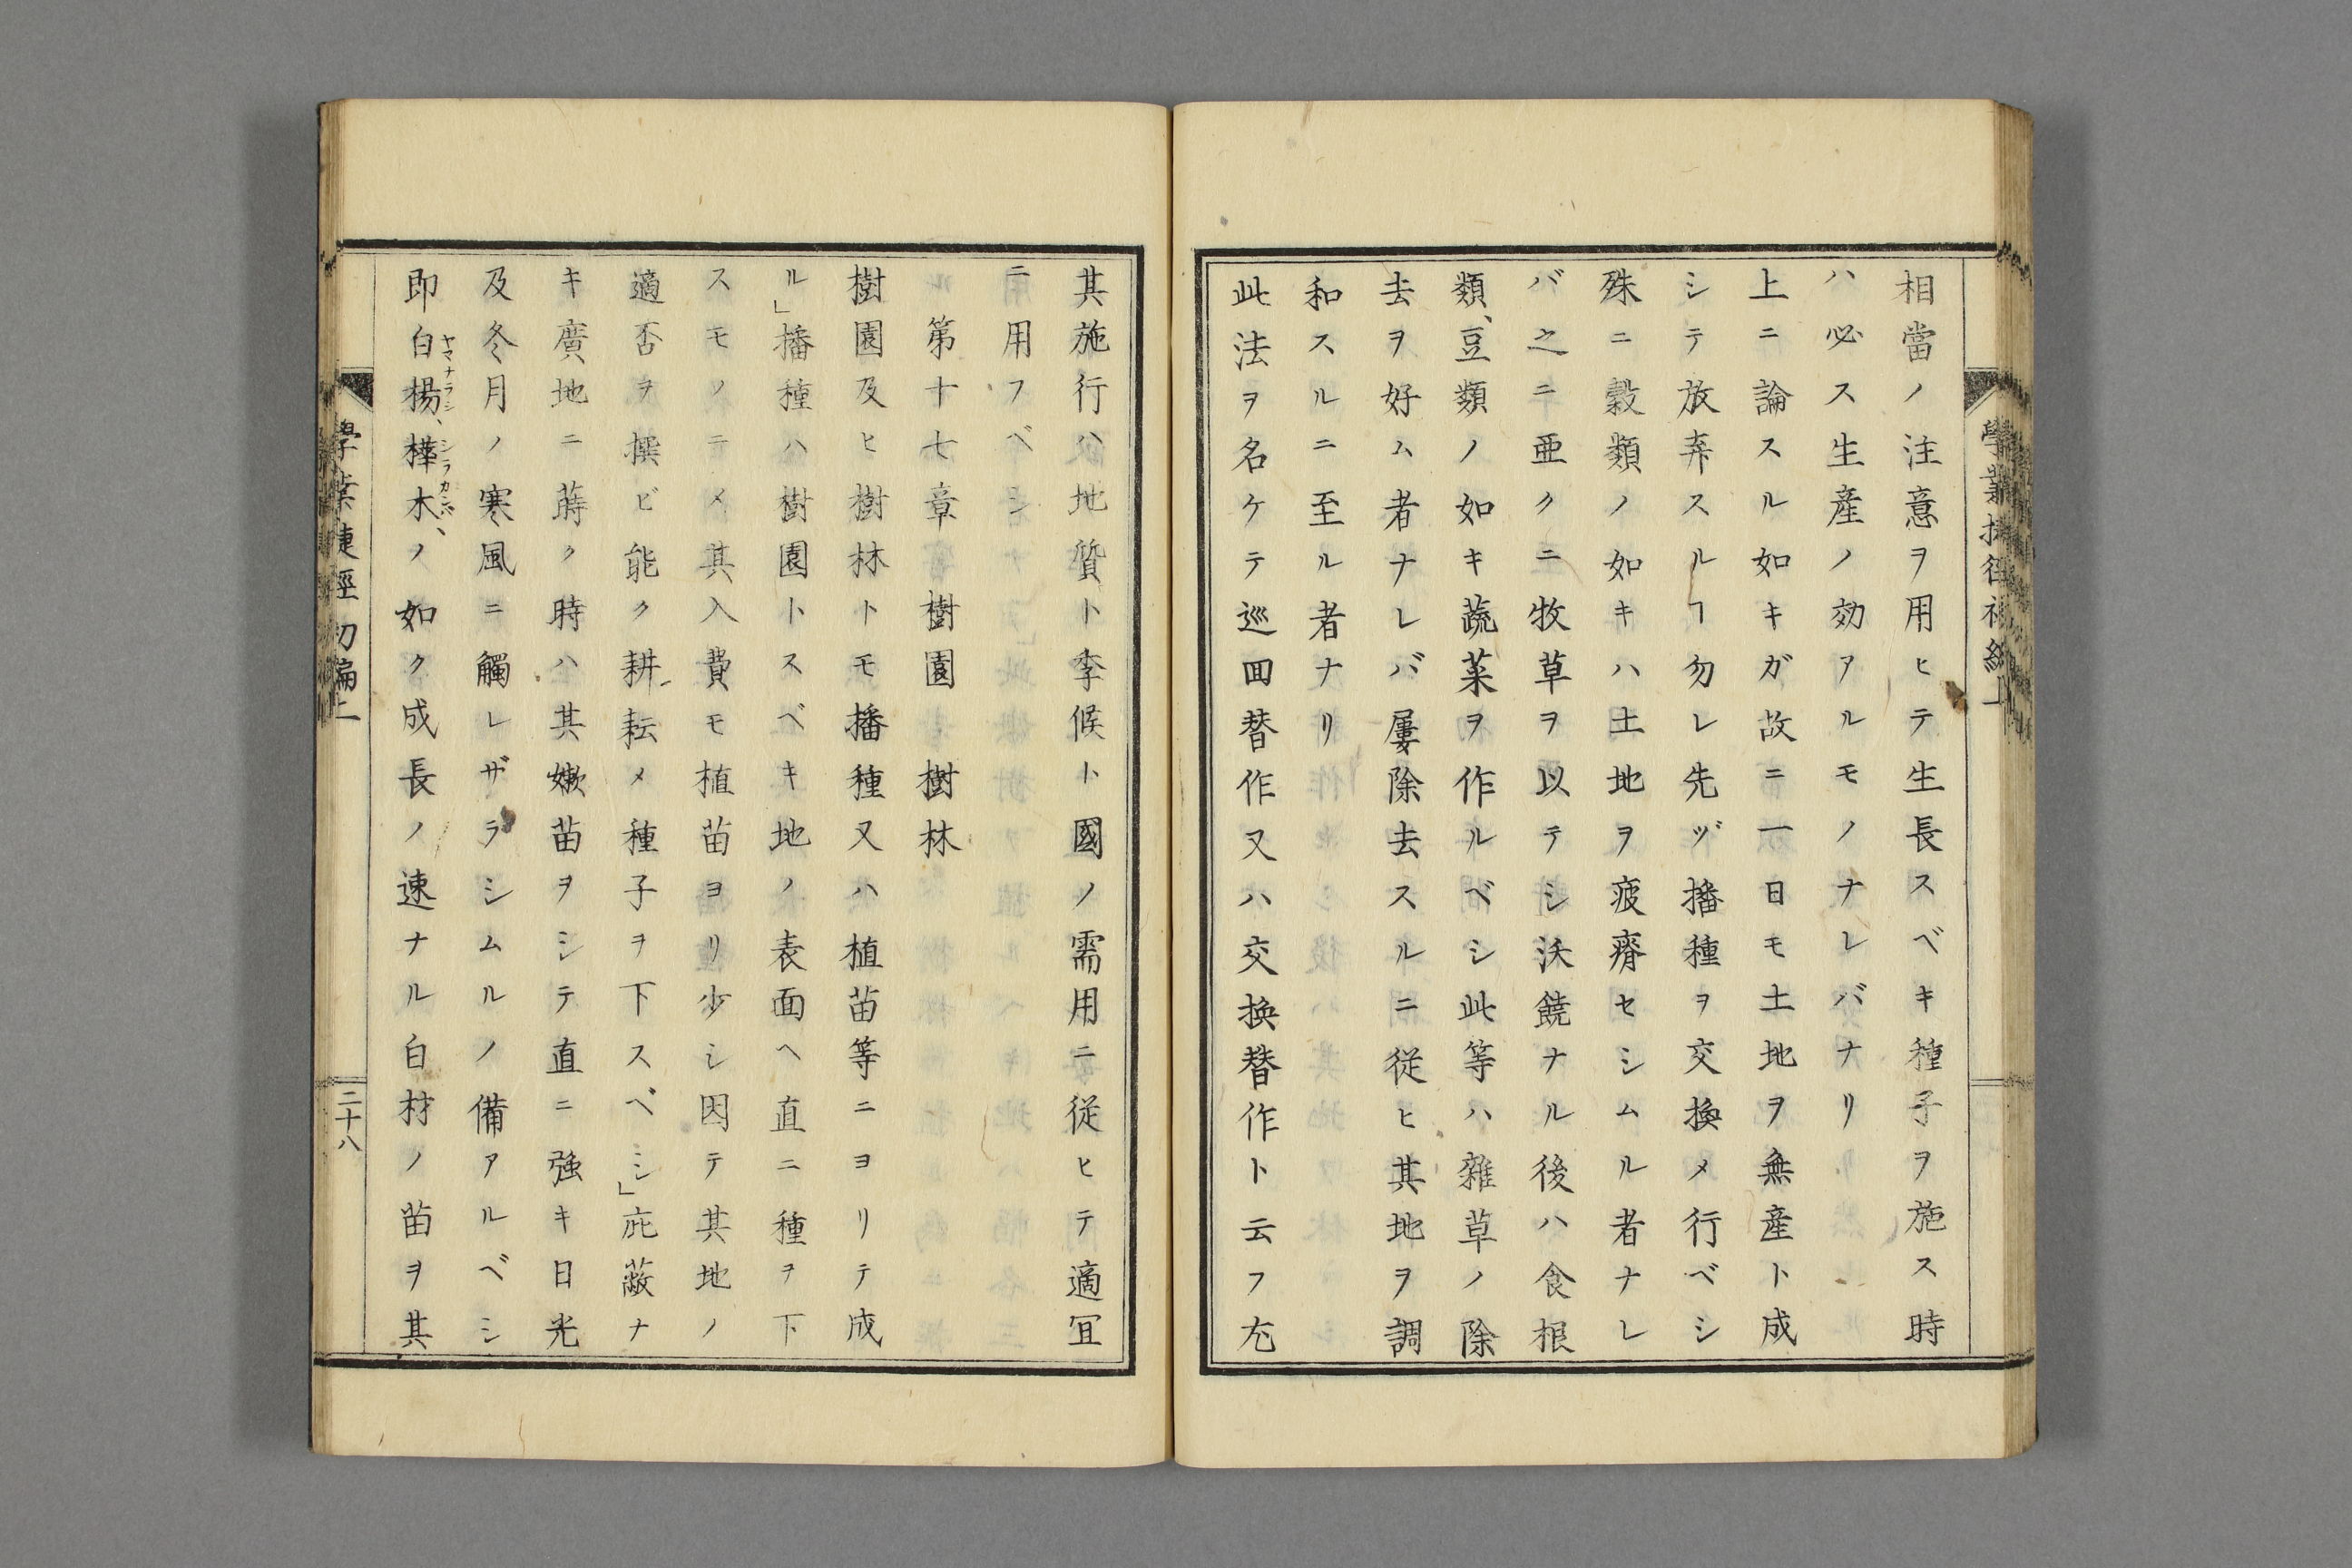 相當ノ注意ヲ用ヒテ生長スベキ種子ヲ施ス時
ハ必ス生産ノ効アルモノナレバナリ
上ニ論スル如キガ故ニ一日モ土地ヲ無産ト成
シテ放弃スルヿ勿レ先ヅ播種ヲ交換メ行ベシ
殊ニ穀類ノ如キハ土地ヲ疲瘠セシムル者ナレ
バ之ニ亜クニ牧草ヲ以テシ沃饒ナル後ハ食根
類、豆類ノ如キ蔬菜ヲ作ルベシ此等ハ雜草ノ除
去ヲ好ム者ナレバ屢除去スルニ従ヒ其地ヲ調
和スルニ至ル者ナリ
此法ヲ名ケテ巡回替作又ハ交換替作ト云フ尤
其施行ハ地質ト季候ト國ノ需用ニ從ヒテ適冝
ニ用フベシ
第十七章 樹園 樹林
樹園及ヒ樹林トモ播種又ハ植苗等ニヨリテ成
ル」播種ハ樹園トスベキ地ノ表面ヘ直ニ種ヲ下
スモノニメ其入費モ植苗ヨリ少シ因テ其地ノ
適否ヲ撰ビ能ク耕耘メ種子ヲ下スベシ」庇蔽ナ
キ廣地ニ蒔ク時ハ其嫩苗ヲシテ直ニ強キ日光
及冬月ノ寒風ニ觸レザラシムルノ備アルベシ
即白楊、樺木、ノ如ク成長ノ速ナル白材ノ苗ヲ其
ヤマナラシ シラカンバ
二十八